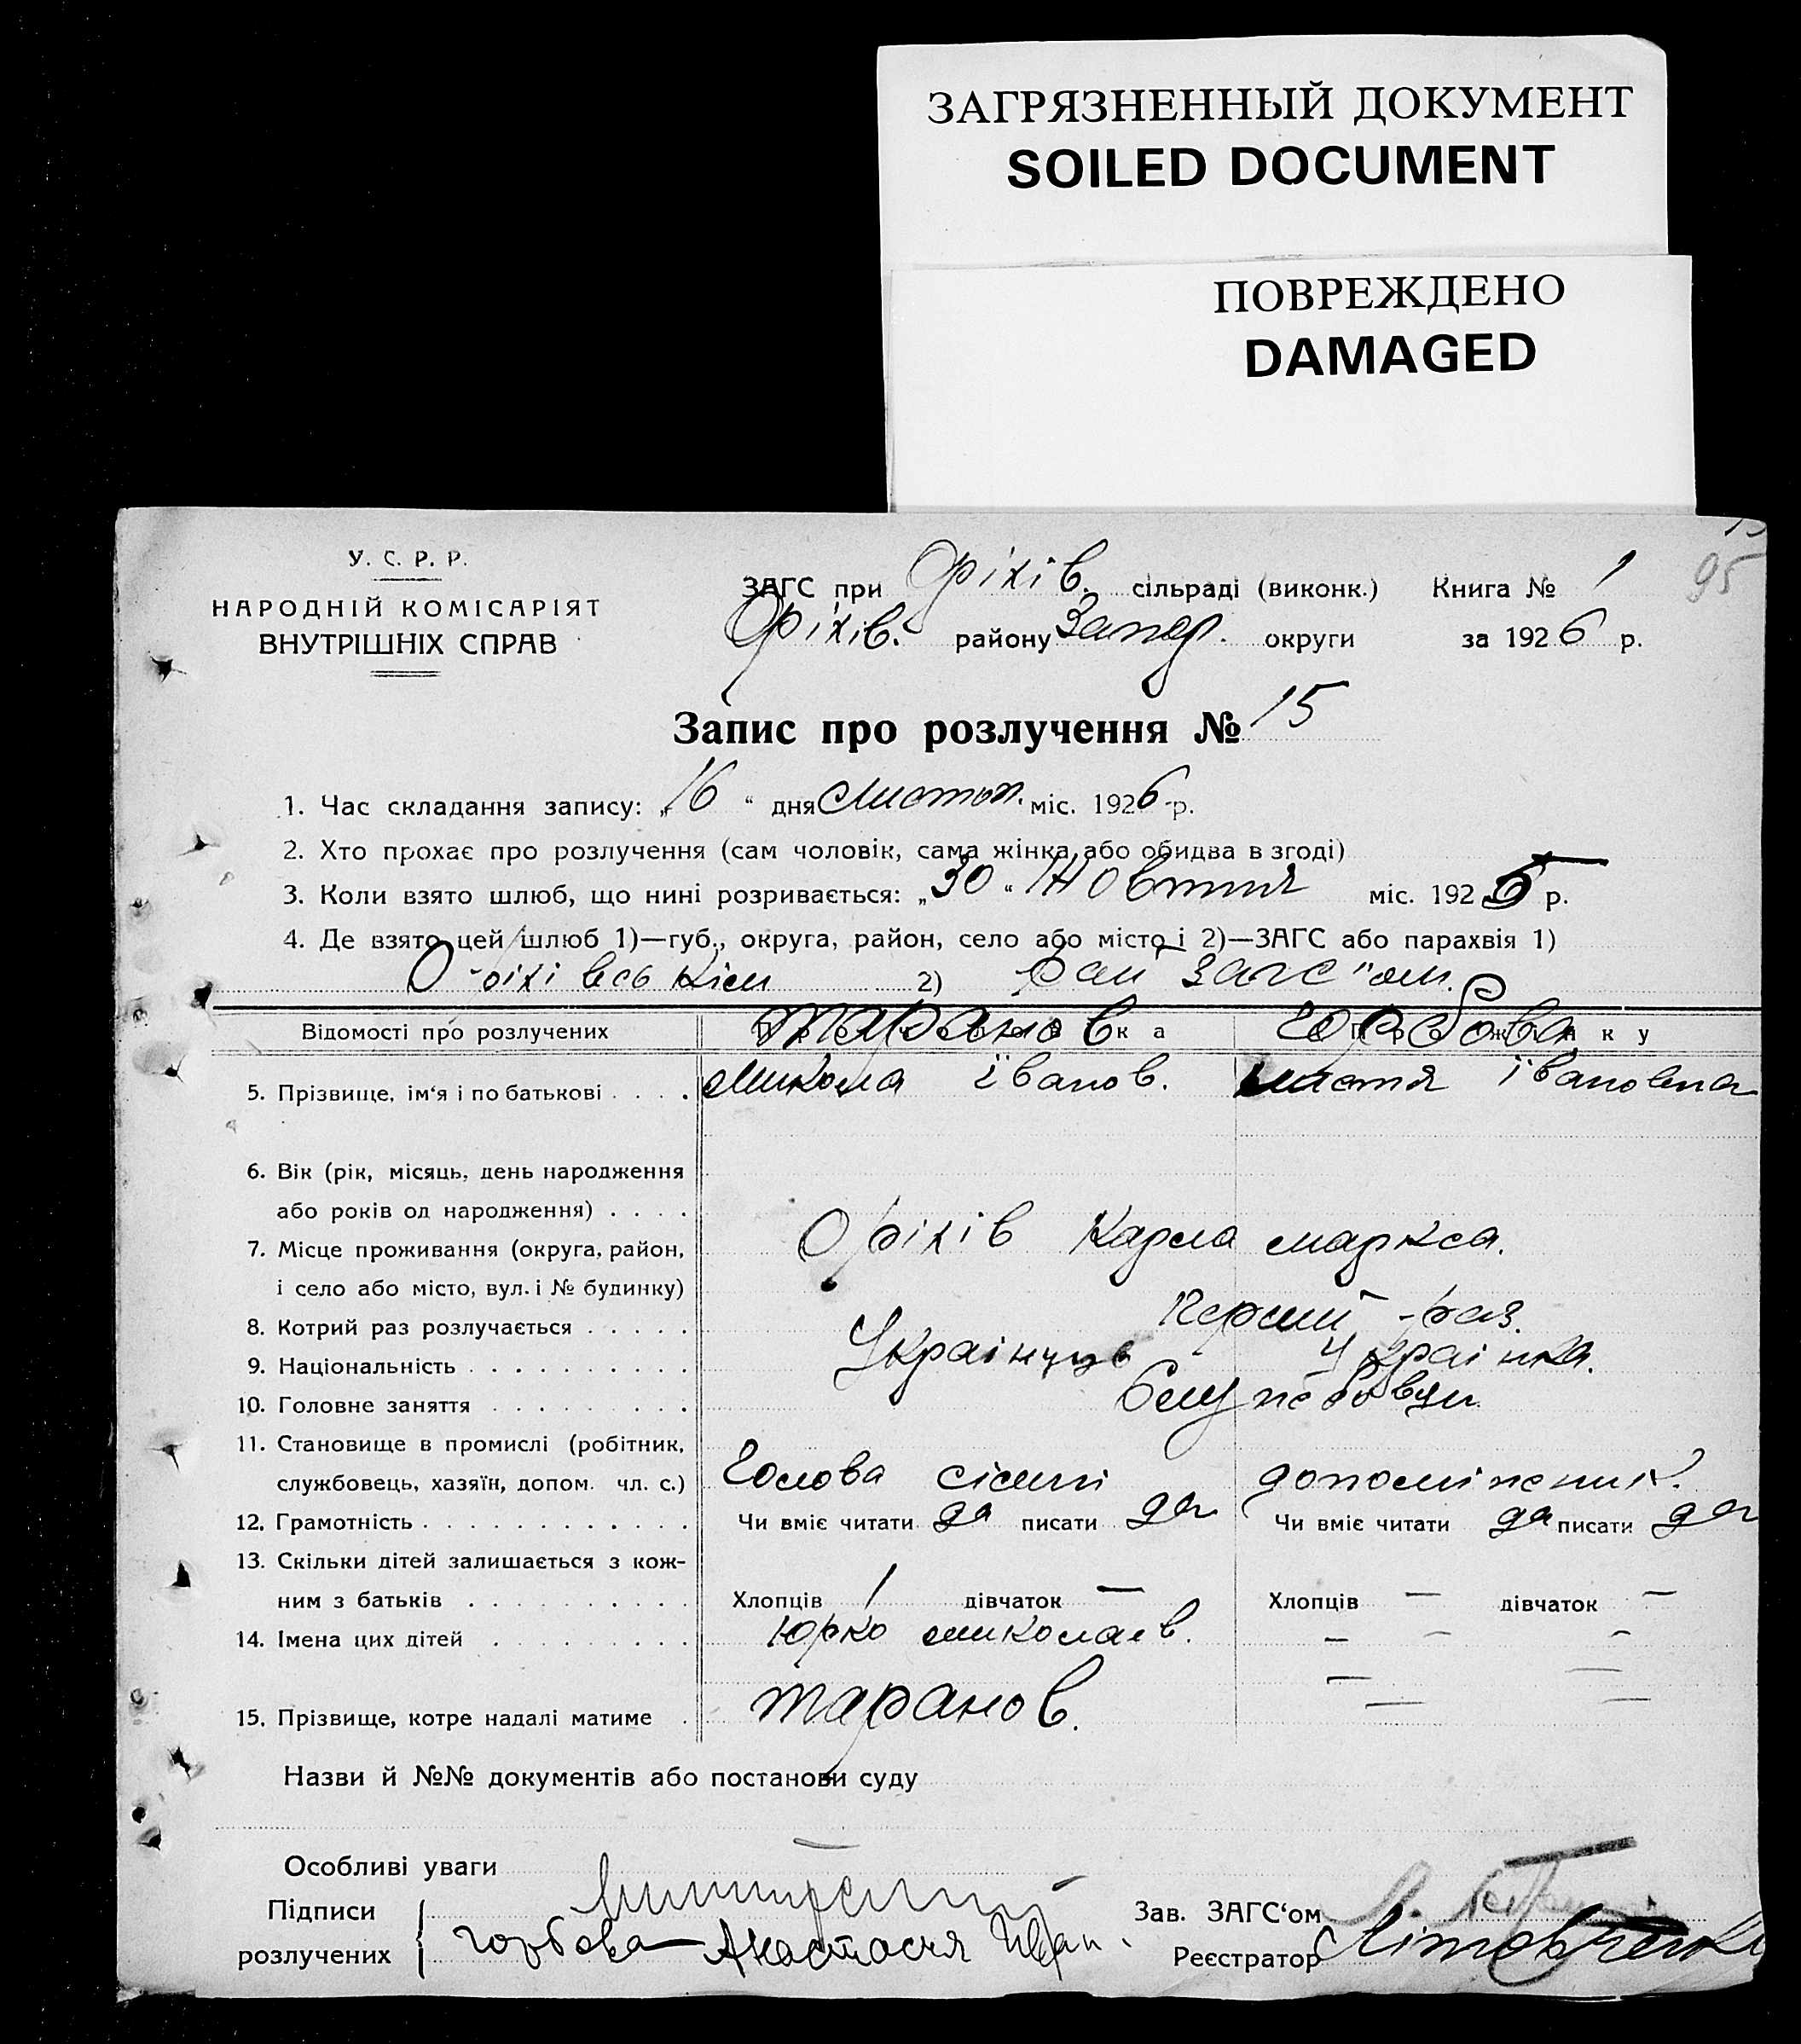 ЗАГРЯЗНЕННЫЙ ДОКУМЕНТ
SOILED DOCUMENT
ПОВРЕЖДЕНО
DAMAGED
95
У. С. Р. Р.
НАРОДНІЙ КОМІСАРІЯТ
ВНУТРІШНІХ СПРАВ
ЗАГС при Оріхів. сільраді (виконк.) Книга № 1
Оріхів. району Запор. округи за 1926 р.
Запис про розлучення № 15
1. Час складання запису: „16“ дня Листоп. міс. 1926 р.
2. Хто прохає про розлучення (сам чоловік, сама жінка, або обидва в згоді)
3. Коли взято шлюб, що нині розривається: „30“ Жовтня міс. 1925 р.
4. Де взято цей шлюб 1)—губ., округа, район, село або місто і 2)—ЗАГС або парахвія 1)
2) Рай загс"ом.
Відомості про розлучених
Таранов Горбова
5. Прізвище, ім'я і по батькові . . . . Микола Іванов. Настя Івановна
6. Вік (рік, місяць, день народження
або років од народження) . . . .
7. Місце проживання (округа, район, Оріхів Карла Маркса.
і село або місто, вул. і № будинку)
8. Котрий раз розлучається . . . . . Перший раз.
9. Національність . . . . . . . . . . Українуць Українка.
10. Головне заняття . . . . . . . . .
11. Становище в промислі (робітник,
службовець, хазяїн, допом. чл. с.) Голова сімі допоміжник.
12. Грамотність . . . . . . . . . . . . Чи вміє читати да писати да Чи вміє читати да писати да
13. Скільки дітей залишається з кож-
ним з батьків . . . . . . . . . . Хлопців 1 дівчаток — Хлопців — дівчаток —
14. Імена цих дітей . . . . . . . . . Юрко Миколаєв. — — —
— —
15. Прізвище, котре надалі матиме . Таранов. — —
Назви й №№ документів або постанови суду
Особливі уваги
Підписи
розлучених Горбова Анастасия Иван.
Зав. ЗАГС'ом
Реєстратор